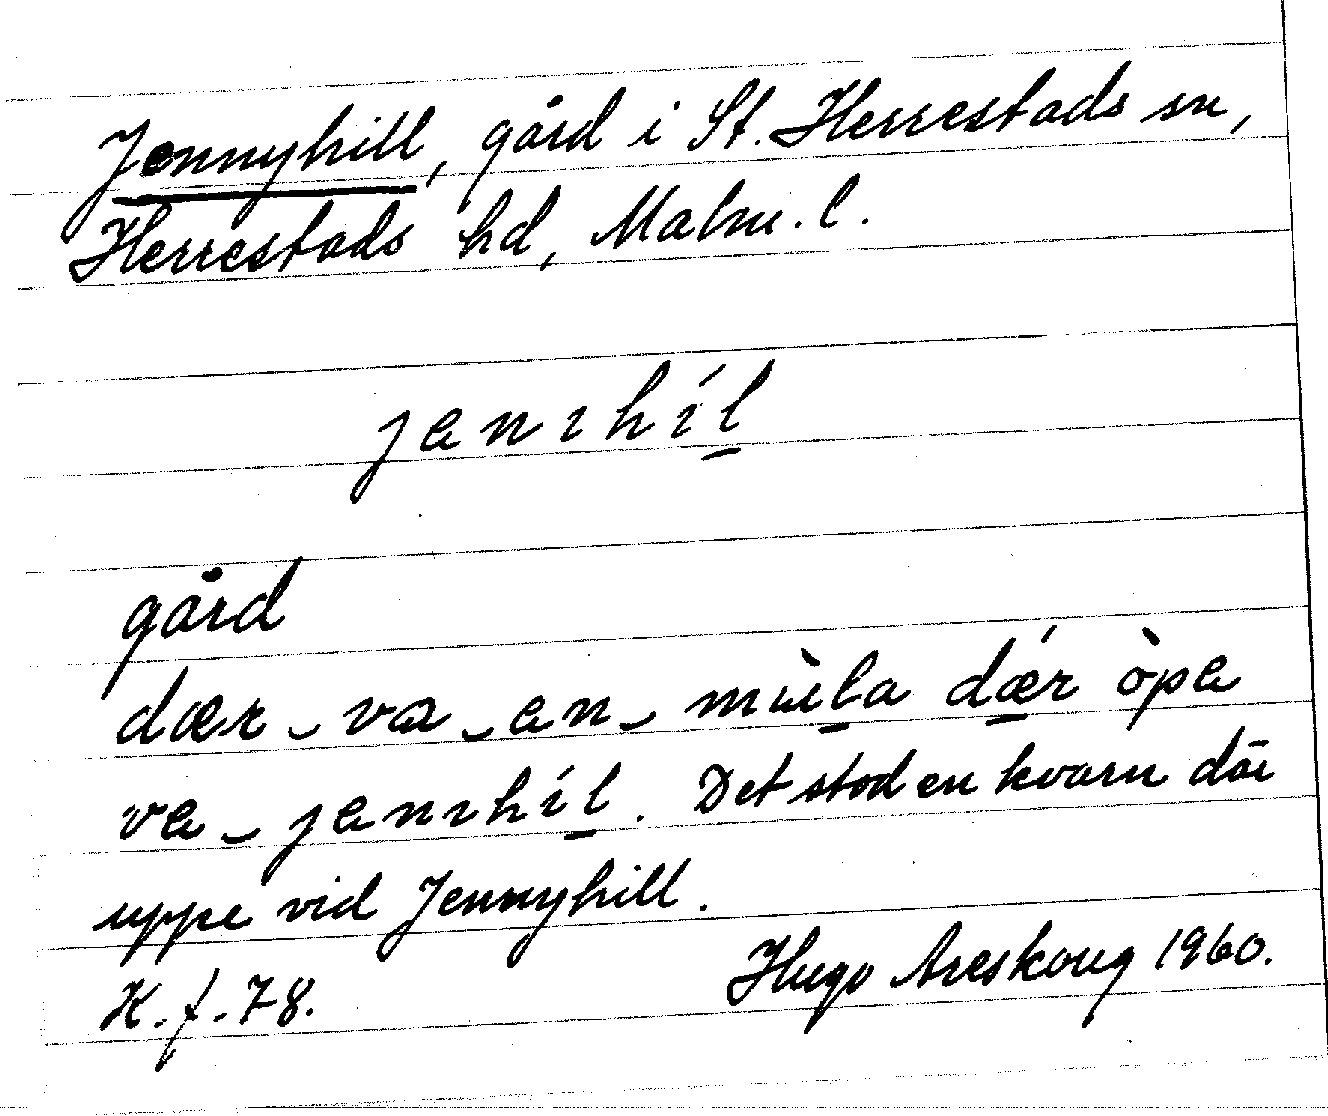 Jennyhill, gård i St. Herrestads sn,
Herrestads hd, Malm. l.
jenıhíl̠
gård
dær ‿ va ‿ en ‿ mùl̠a dǽ̠r òpe
ve ‿ jenıhíl̠. Det stod en kvarn där
uppe vid Jennyhill.
K. f. 78.
Hugo Areskoug 1960.